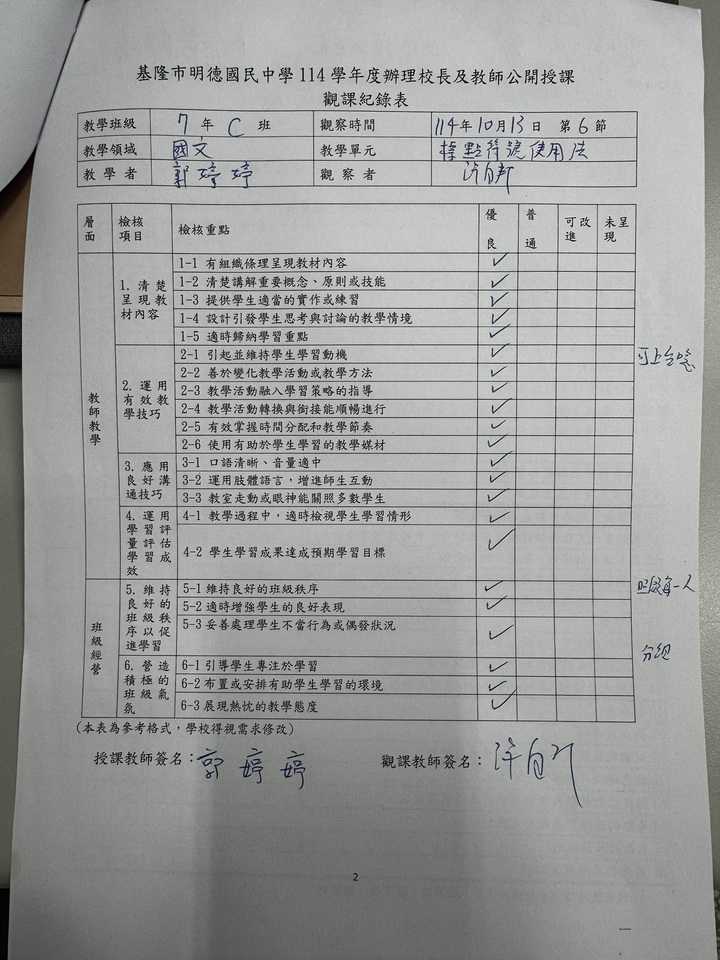 基隆市明德國民中學 114 學年度辦理校長及教師公開授課
觀課紀錄表
教學班級 7 年 C 班 觀察時間 114年 10月 13日 第 6 節
教學領域 國文 教學單元 標點符號使用法
教 學 者 郭婷婷 觀 察 者
層面 檢核項目 檢核重點 優良 普通 可改進 未呈現
教師教學
1. 清楚呈現教材內容
1-1 有組織條理呈現教材內容 ✓
1-2 清楚講解重要概念、原則或技能 ✓
1-3 提供學生適當的實作或練習 ✓
1-4 設計引發學生思考與討論的教學情境 ✓
1-5 適時歸納學習重點 ✓
2. 運用有效教學技巧
2-1 引起並維持學生學習動機 ✓ 可上台
2-2 善於變化教學活動或教學方法 ✓
2-3 教學活動融入學習策略的指導 ✓
2-4 教學活動轉換與銜接能順暢進行 ✓
2-5 有效掌握時間分配和教學節奏 ✓
2-6 使用有助於學生學習的教學媒材 ✓
3. 應用良好溝通技巧
3-1 口語清晰、音量適中 ✓
3-2 運用肢體語言，增進師生互動 ✓
3-3 教室走動或眼神能關照多數學生 ✓
4. 運用學習評量評估學習成效
4-1 教學過程中，適時檢視學生學習情形 ✓
4-2 學生學習成果達成預期學習目標 ✓
班級經營
5. 維持良好的班級秩序以促進學習
5-1 維持良好的班級秩序 ✓ 照顧每一人
5-2 適時增強學生的良好表現 ✓
5-3 妥善處理學生不當行為或偶發狀況 ✓
分組
6. 營造積極的班級氣氛
6-1 引導學生專注於學習 ✓
6-2 布置或安排有助學生學習的環境 ✓
6-3 展現熱忱的教學態度 ✓
(本表為參考格式，學校得視需求修改)
授課教師簽名：郭婷婷 觀課教師簽名：
2